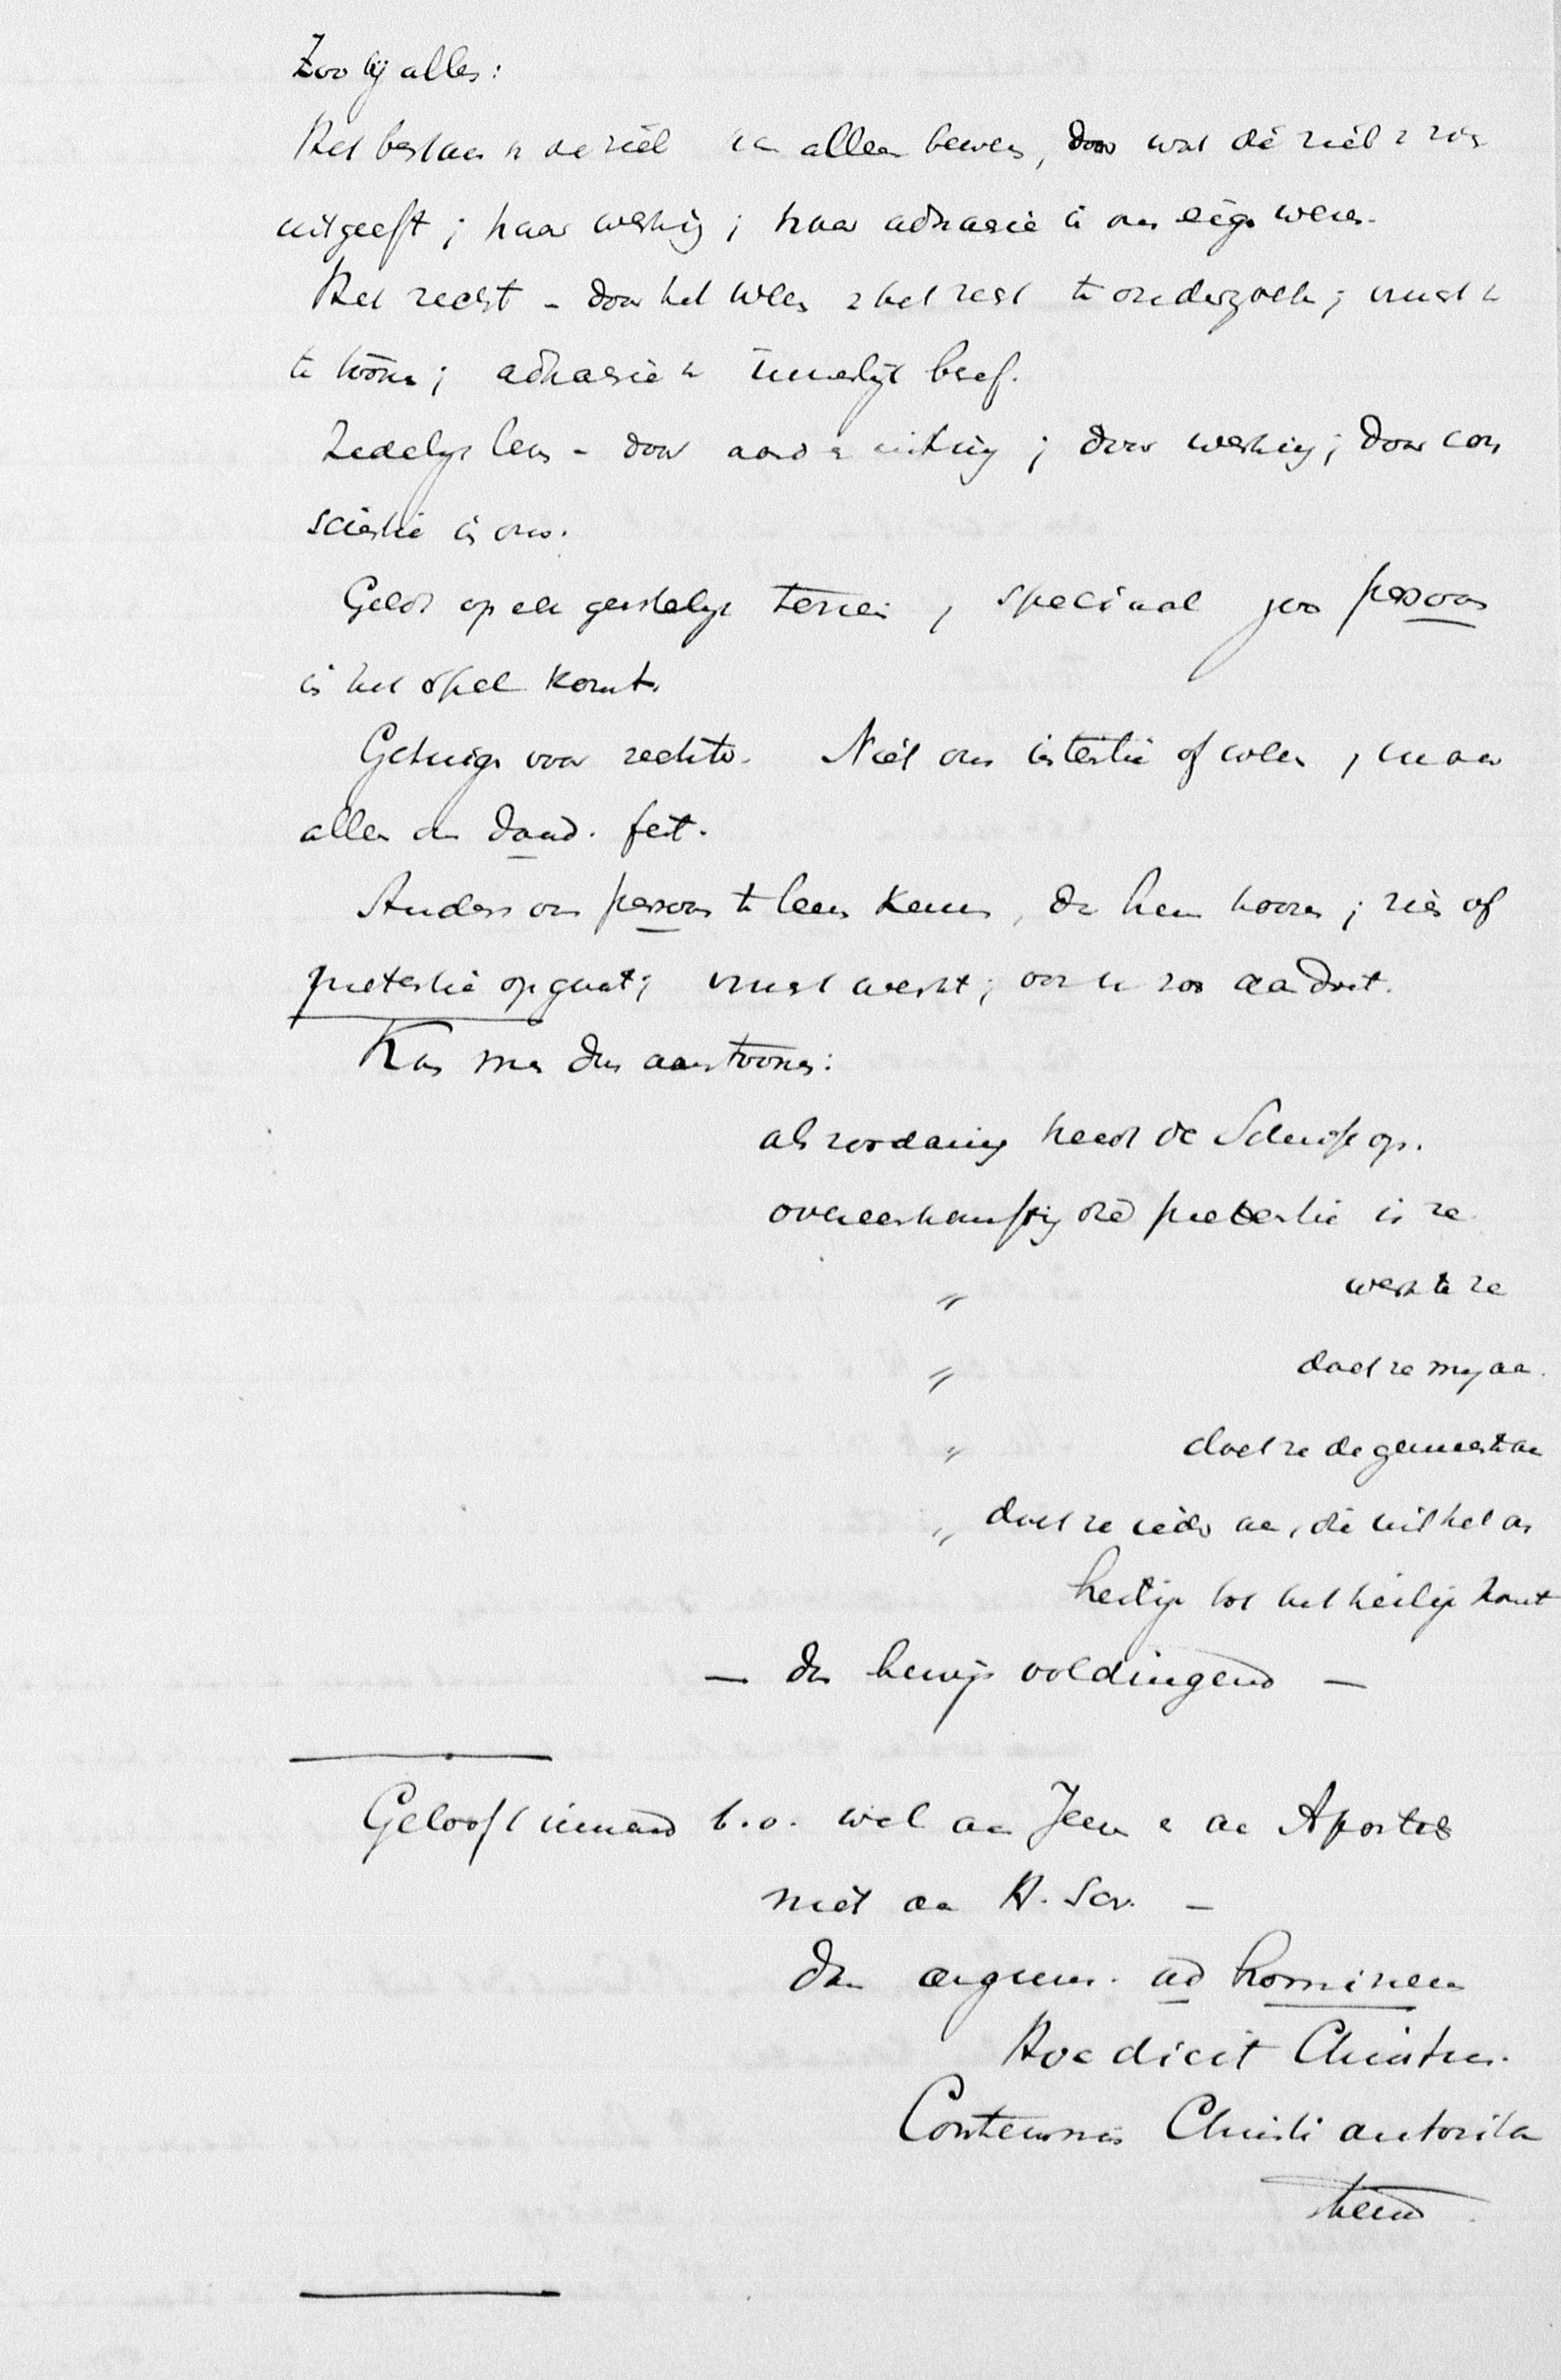 Zoo bij alles:
Het bestaan v de ziel alleen bewezen, door wat de ziel v zich
uitgeeft; haar werking; haar adhaesie in ons eige wezen.
Het recht - door het wezen v het recht te onderzoeken; vrucht v
te toonen; adhaesie v innerlijk besef.
Zedelijk leven - door aard v uiting; door werking; door con
scientie in ons.
Geldt op elk geestelijk terrein, speciaal zoo persoon
in het spel komt.
Getuige voor rechtb. Niet ons intentie of willen, maar
alleen de daad. feit.
Anders om persoon te leeren kennen, de hem hooren; zien of
pretentie opgaat; vrucht werkt; aandoet.
Kan men dus aantoonen:
als zoodanig heeft de Schrift op.
overeenkomstig die pretentie is ze
〃 werkte ze
〃 doet ze mij aan.
〃 doet ze de gemeente aan
〃 doet ze ieder aan, die uit het on
heilige tot het heilige komt
— dan bewijs voldingend —
Gelooft iemand b.v. wel aan Jezus en aan Apostel
niet aan H. Scr. —
dan argum. ad hominem
Hoc dicit Christus.
Contemnis Christi autorita
tem